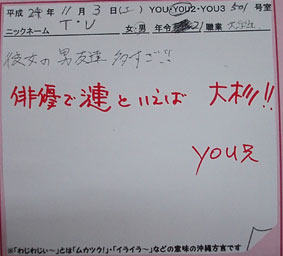 平成 24年 11月 3日(土) YOU・YOU2・YOU3 501号室
ニックネーム T・U 女・男 年令 21 職業 大学生
彼女の男友達 多すご!!
俳優で漣といえば 大杉!!
YOU兄
※「わじわじぃ~」とは「ムカツク!」・「イライラ~」などの意味の沖縄方言です